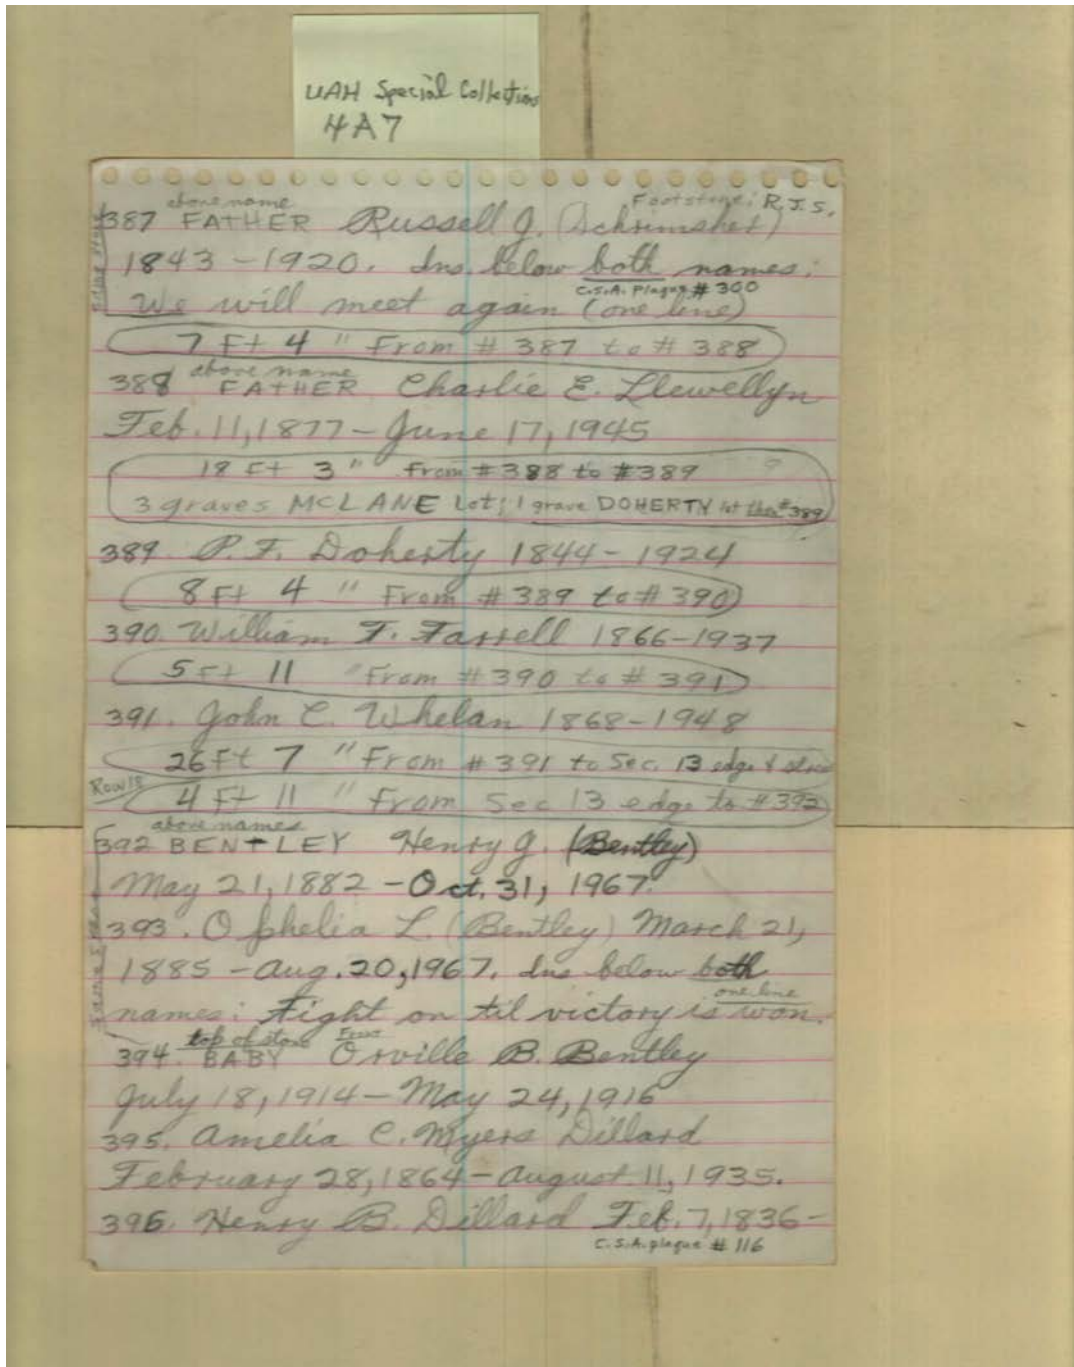 UAH Special Collections
4A7
above name Footstone: R.J.S.
387 FATHER Russell J. (Schrimsher)
1843 - 1920. Ins. below both names:
C.S.A. plaque # 300
We will meet again (one line)
7 Ft 4 " From # 387 to # 388
above name
388 FATHER Charlie E. Llewellyn
Feb. 11, 1877 - June 17, 1945
18 Ft 3 " From # 388 to # 389
3 graves MCLANE Lot; 1 grave DOHERTY lot then # 389
389. P. F. Doherty 1844 - 1924
8 Ft 4 " From # 389 to # 390
390. William F. Farrell 1866-1937
5 Ft 11 " From # 390 to # 391
391. John C. Whelan 1868-1948
26 Ft 7 " From # 391 to Sec. 13 edge &
Row 18
4 Ft 11 " From Sec 13 edge to # 392
above names
392 BENTLEY Henry J. (Bentley)
May 21, 1882 - Oct. 31, 1967.
393. Ophelia L. (Bentley) March 21,
1885 - Aug. 20, 1967. Ins below both
one line
names: Fight on til victory is won.
top of stone
394. BABY Orville B. Bentley
July 18, 1914 - May 24, 1916
395. Amelia C. Myers Dillard
February 28, 1864 - August 11, 1935.
396. Henry B. Dillard Feb. 7, 1836 -
C.S.A. plaque # 116